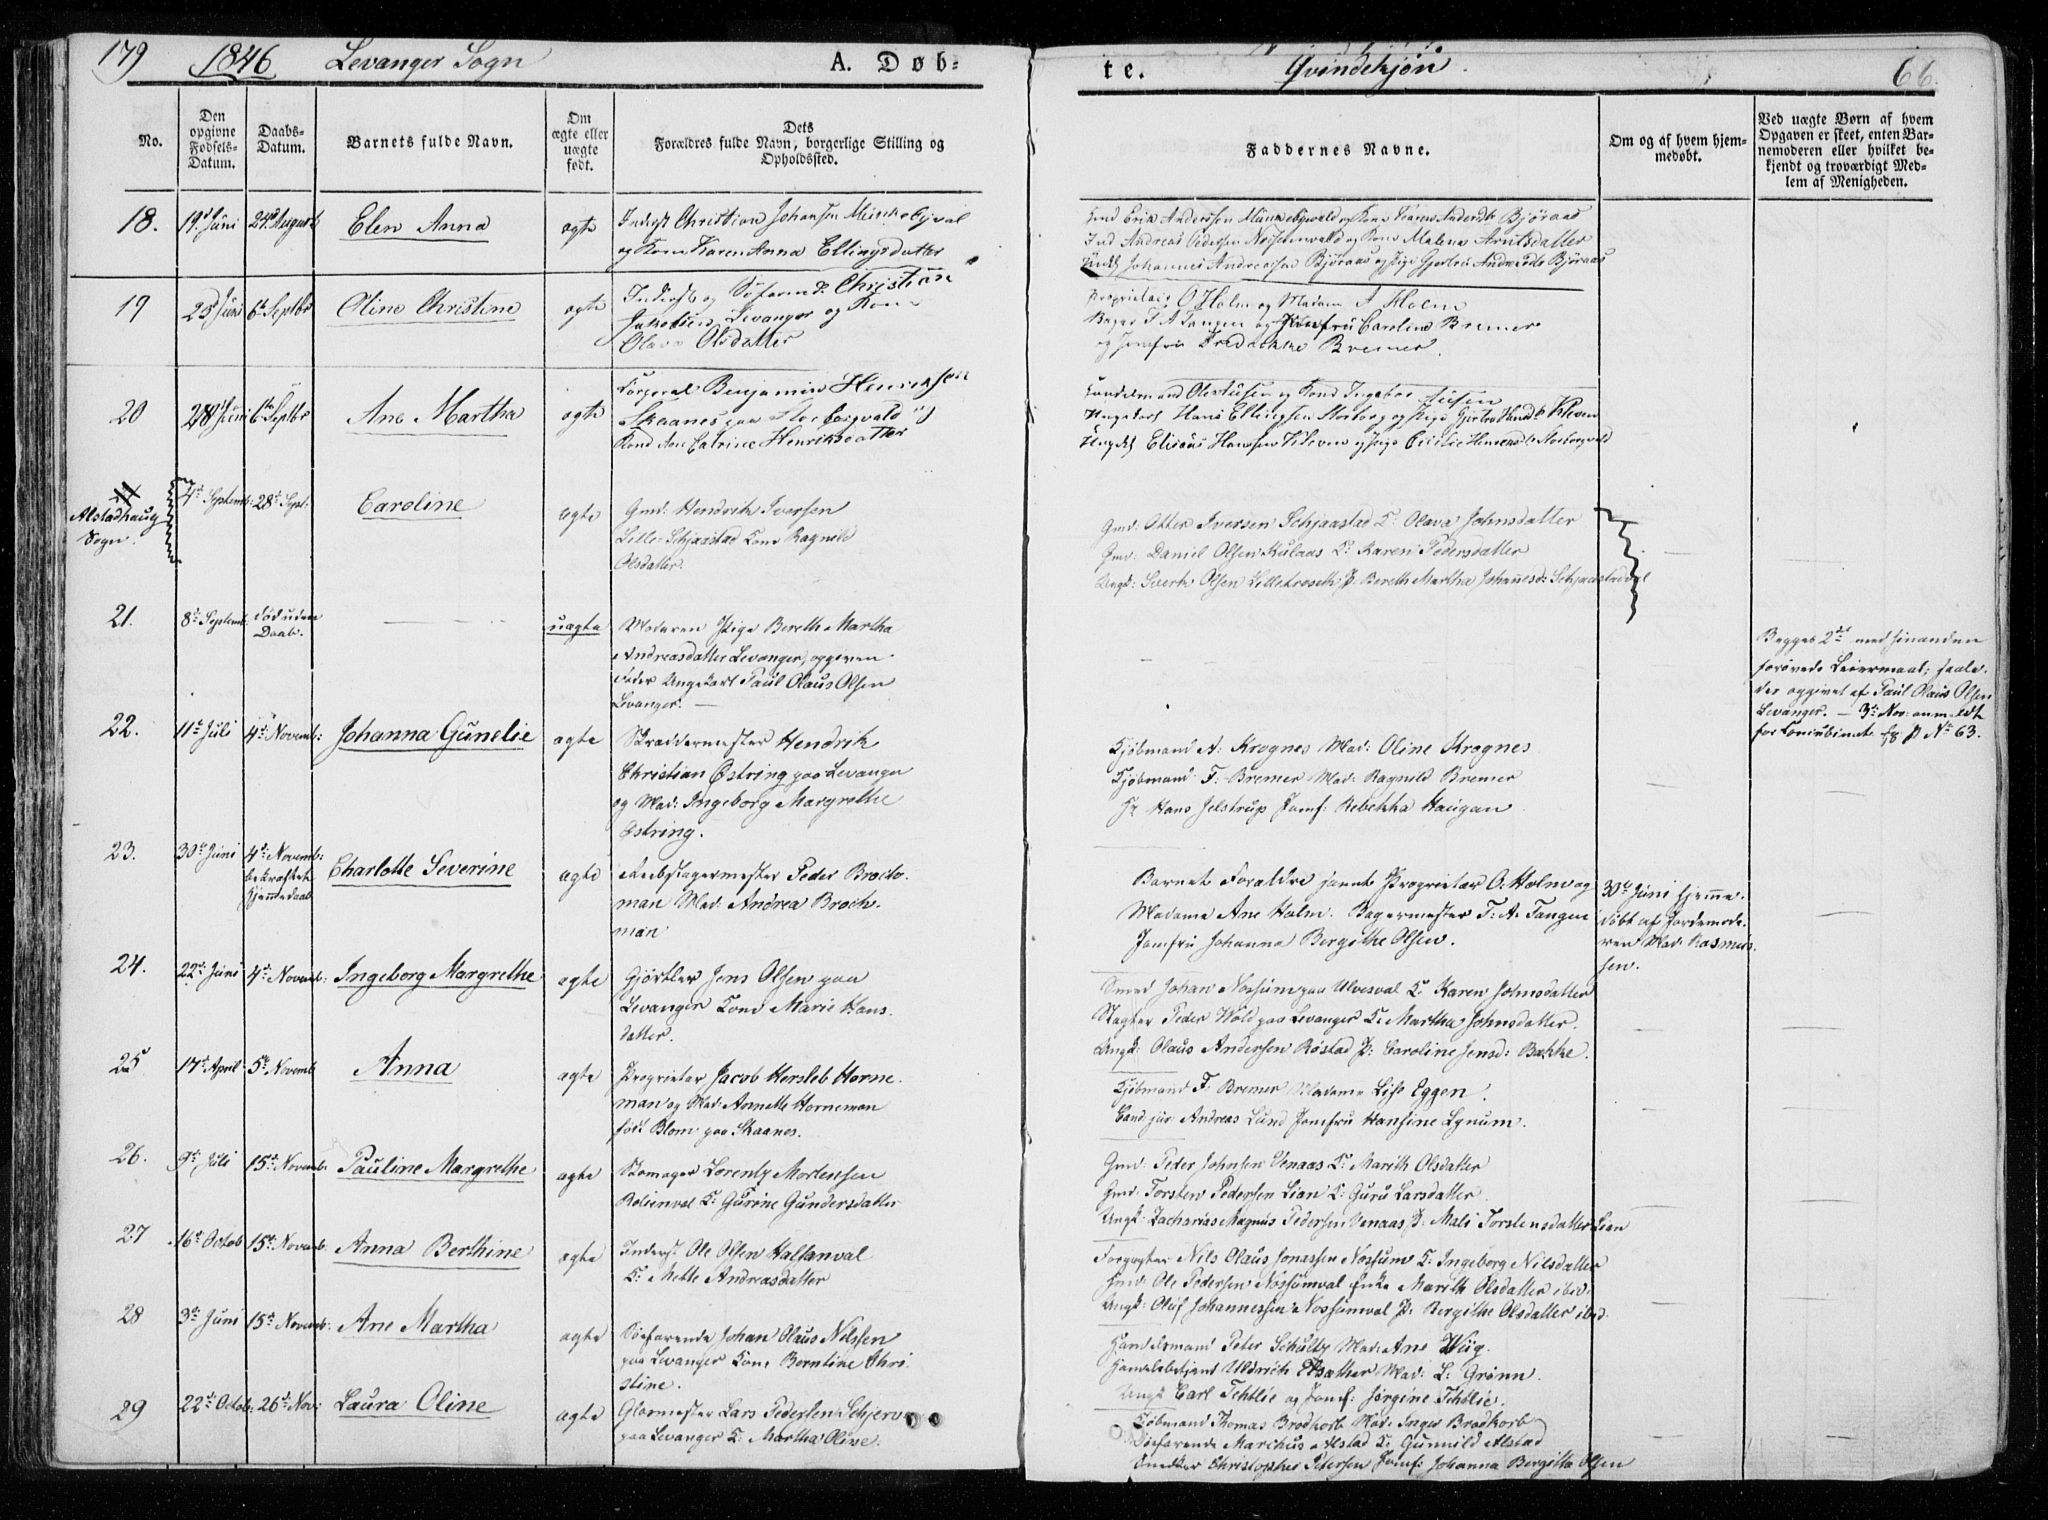 179 1846 Levanger Sogn A. Døb-
te. Qvindekjøn. 66.
No.
Den opgivne Fødsels-Datum.
Daabs-Datum.
Barnets fulde Navn.
Om ægte eller uægte født.
Dets Forældres fulde Navn, borgerlige Stilling og Opholdssted.
Faddernes Navne.
Om og af hvem hjemmedøbt.
Ved uægte Børn af hvem Opgaven er skeet, enten Barnemoderen eller hvilket bekjendt og troværdigt Medlem af Menigheden.
18. 19de Juni 24de August Elen Anna ægte
Inderst Christian Johansen Munkebyval
og Kone Karen Anna Ellingsdatter
Erik Andersen Munkebyvald og Kone Karen Andersdr Bjøraas
Ind Andreas Pedersen og Kone Malena Arntsdatter
Ungk Johannes Andreassen Bjøraas og Pige Gjertru Andreasdr Bjøraas
19 25 Juni 6te Septbr Oline Christine ægte
Inderst og Søfarende Christian
Jakobsen Levanger og Kone
Olava Olsdatter
Proprietair O Holm og Madam A Holm
Bager F A Tangen og Jomfru Caroline Bremer
og Jomfru Fredrikke Bremer.
20 28 Juni 6te Septbr Ane Martha ægte
Korporal Benjamin Henriksen
Skaanes paa
Kone Ane Catrine Henriksdatter
Ungekarl Hans Ellingsen Storborg og Pige Kleven
Ungk Elisæus Hansen Kleven og Pige
Alstadhaug
Sogn.
4de Septemb: 28de Sept: Caroline ægte
Gmd: Hendrik Iversen
Lille-Schjaastad Kone Ragnild
Olsdatter.
Gmd: Otter Iversen Schjaastad K: Olava Johnsdatter
Gmd: Daniel Olsen Kulaas K: Karen Pedersdatter
Ungk: Sivert Olsen Lilletroseth P. Bereth Martha Johannesd: Schjaastadval
21. 8de Septemb: død uden
Daab. uægte
Moderen Pige Bereth Martha
Andreasdatter Levanger, opgiven
Fader Ungekarl Paul Olaus Olsen
Levanger.
Begges 2det med hinanden
forøvede Leiermaal; saale-
des opgivet af Paul Olaus Olsen
Levanger. — 3de Nov: anmeldt
for Concubinate No 63.
22. 11te Juli 4de Novemb: Johanna Gunelie ægte
Skræddermester Hendrik
Christian Østring paa Levanger
og Mad: Ingeborg Margrethe
Østring.
Kjøbmand A: Krognes Mad: Oline Krognes
Kjøbmand F: Bremer Mad: Ragnild Bremer
Hr Hans Jelstrup Jomf: Rebekka Haugan
23. 30te Juni 4de Novemb:
bekræftet
Hjemmedaab Charlotte Severine ægte
Rebslagermester Peder Broch-
man Mad: Andrea Broch-
man
Barnets Forældre samt Proprietær O. Holm og
Madame Ane Holm. Bagermester F: A: Tangen
Jomfru Johanna Bergithe Olsen.
30te Juni hjemme-
døbt af Jordemode-
ren Mad: Rasmus-
sen.
24. 22de Juni 4de Novemb: Ingeborg Margrethe ægte
Gjørtler Jens Olsen paa
Levanger Kone Marie Hans-
datter.
Smed Johan Nossum paa Ulvesval K: Karen Johnsdatter
Slagter Peder Wold paa Levanger K: Martha Johnsdatter.
Ungk: Olaus Andersen Røstad P: Caroline Jensd: Bakke.
25 17de April 5te Novemb Anna ægte
Proprietær Jacob Hersleb Horne-
man og Mad: Annette Horneman
født Blom paa Skaanes.
Kjøbmand F. Bremer Madame Lise Eggen.
Cand jur Andreas Lund Jomfru Hansine Lynum.
26. 9de Juli 15de Novemb: Pauline Margrethe ægte
Skomager Lorentz Mortensen
K: Gurine Gundersdatter
Gmd: Peder Johnsen Venaas K: Marith Olsdatter
Gmd: Torsten Pedersen Lian K: Guru Larsdatter
Ungk: Zacharias Magnus Pedersen Venaas P: Mali Torstensdatter Lian
27 16de Octob 15de Novemb: Anna Berthine ægte
Inderst Ole Olsen Hallanval
K: Mette Andreasdatter
Forgagter Nils Olaus Jonassen Nossum K: Ingeborg Nilsdatter
Gmd: Ole Pedersen Nossumval Enke Marith Olsdatter ibid:
Ungk: Oluf Johannessen Nossumval P: Bergithe Olsdatter ibid.
28 3die Juni 15de Novemb: Ane Martha ægte
Søefarende Johan Olaus Nilssen
paa Levanger Kone Berntine Chri-
stine.
Handelsmand Peter Schultz Mad: Ane Wiig.
Handelsbetjent Uldrich Mad: L: Grønn.
Ungk Carl Tehtlie og Jomf: Jørgine Tehtlie.
29 22de Octob: 26de Nov: Laura Oline ægte
Glarmester Lars Pedersen Schjerv
paa Levanger K: Martha Oline.
Kjøbmand Thomas Brodkorb Mad: Inger Brodkorb
Søefarende Marchus Alstad K: Gunnild Alstad
Snedker Christopher Petersen Jomf: Johanna Bergitta Olsen